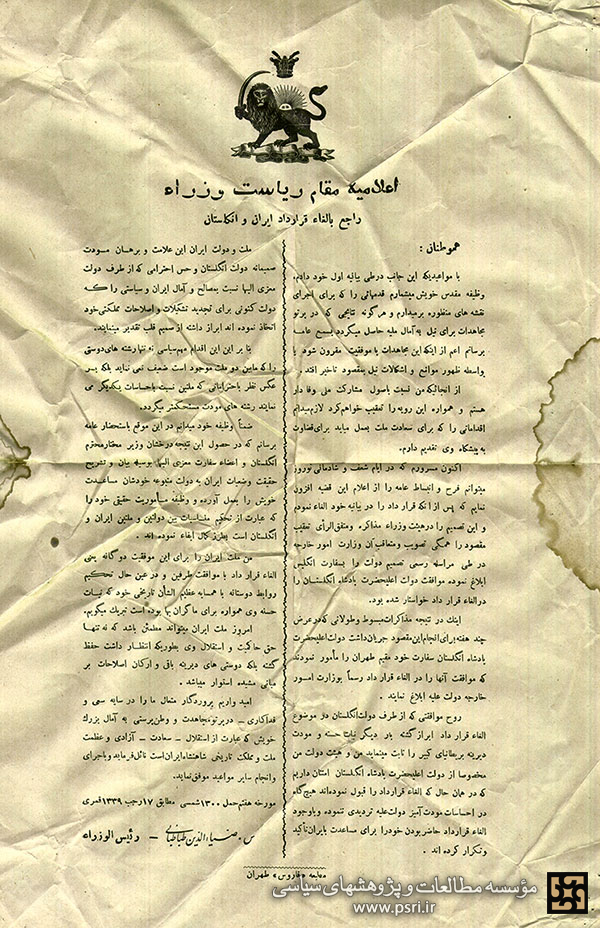 اعلامیه مقام ریاست وزراء
راجع بالغاء قرارداد ایران و انگلستان
هموطنان :
با مواعدیکه این جانب درطی بیانیه اول خود دادم،
وظیفه مقدس خویش میشمارم قدمهائی را که برای اجرای
نقشه های منظوره برمیدارم و هرگونه نتایجی که در پرتو
مجاهدات برای نیل به آمال ملیه حاصل میگردد بسمع عامه
برسانم اعم از اینکه این مجاهدات با موفقیت مقرون شود یا
بواسطه ظهور موانع و اشکالات نیل بمقصود تاخیر افتد .
از آنجائیکه من نسبت باصول مشارکت ملی وفا دار
هستم و همواره این رویه را تعقیب خواهم کرد لازم میدانم
اقداماتی را که برای سعادت ملت بعمل میاید برای قضاوت
به پیشگاه وی تقدیم دارم.
اکنون مسرورم که در ایام شعف و شادمانی نوروز
میتوانم فرح و انبساط عامه را از اعلام این قضیه افزون
نمایم که پس از آنکه قرار داد را در بیانیه خود الغاء نمودم
و این تصمیم را درهیئت وزراء مذاکره و متفق الرأی تعقیب
مقصود را همگی تصویب و متعاقب آن وزارت امور خارجه
در طی مراسله رسمی تصمیم دولت را بسفارت انگلیس
ابلاغ نموده موافقت دولت اعلیحضرت پادشاه انگلستان را
درالغاء قرار داد خواستار شده بود.
اینک در نتیجه مذاکرات مبسوط و طولانی که در عرض
چند هفته برای انجام این مقصود جریان داشت دولت اعلیحضرت
پادشاه انگلستان سفارت خود مقیم طهران را مأمور نمودند
که موافقت آنها را در الغاء قرار داد رسماً بوزارت امور
خارجه دولت علیه ابلاغ نمایند .
روح موافقتی که از طرف دولت انگلستان در موضوع
الغاء قرار داد ابراز گشته بار دیگر نیات حسنه و مودت
دیرینه بریطانیای کبیر را ثابت مینماید من و هیئت دولت من
مخصوصا از دولت اعلیحضرت پادشاه انگلستان امتنان داریم
که در همان حال که الغاء قرارداد را قبول نموده‌اند هیچگاه
در احساسات مودت آمیز دولت علیه تردیدی ننموده و باوجود
الغاء قرارداد حاضر بودن خود را برای مساعدت بایران تأکید
و تکرار کرده اند .
ملت و دولت ایران این علامت و برهان مودت
صمیمانه دولت انگلستان و حس احترامی که از طرف دولت
معزی الیها نسبت به مصالح و آمال ایران و سیاستی را که
دولت کنونی برای تجدید تشکیلات و اصلاحات مملکتی خود
اتخاذ نموده اند ابراز داشته از صمیم قلب تقدیر مینمایند.
بنا بر این این اقدام مهم سیاسی نه تنها رشته های دوستی
را که مابین دو ملت موجود است ضعیف نمی نماید بلکه بر
عکس نظر باحتراماتی که ملتین نسبت باحساسات یکدیگر می
نمایند رشته های مودت مستحکمتر میگردد.
ضمناً وظیفه خود میدانم در این موقع باستحضار عامه
برسانم که در حصول این نتیجه درخشان وزیر مختار محترم
انگلستان و اعضاء سفارت معزی الیها بوسیله بیان و تشریح
حقیقت وضعیات ایران به دولت متبوعه خودشان مساعدت
خویش را بعمل آورده و وظیفه مأموریت حقیقی خود را
که عبارت از تحکیم مناسبات بین دولتین و ملتین ایران و
انگلستان است بطرز کامل ایفاء نموده اند .
من ملت ایران را برای این موفقیت دو گانه یعنی
الغاء قرار داد با موافقت طرفین و در عین حال تحکیم
روابط دوستانه با همسایه عظیم الشأن تاریخی خود که نیات
حسنه وی همواره برای ما گران بها بوده است تبریک میگویم.
امروز ملت ایران میتواند مطمئن باشد که نه تنها
حق حاکمیت و استقلال وی بطوریکه انتظار داشت حفظ
گشته بلکه دوستی های دیرینه باقی و ارکان اصلاحات بر
مبانی مشیده استوار میباشد .
امید واریم پروردگار متعال ما را در سایه سعی و
فداکاری – در پرتو مجاهدت و وطن پرستی به آمال بزرگ
خویش که عبارت از استقلال – سعادت – آزادی و عظمت
ملت و مملکت تاریخی شاهنشاه ایران است نائل فرماید و باجرای
و انجام سایر مواعید موفق نماید.
مورخه هفتم حمل ۱۳۰۰ شمسی مطابق ۱۷ رجب ۱۳۳۹ قمری
س . ضیاءالدین طباطبائی – رئیس الوزراء
مطبعه «فاروس» طهران
مؤسسه مطالعات و پژوهشهای سیاسی
www.psri.ir